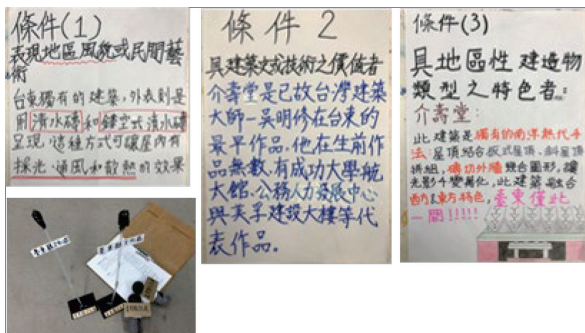 條件(1)
表現地區風貌或民間藝
術
台東獨有的建築,外表則是
用清水磚和鏤空式清水磚
呈現,這種方式可讓屋內有
採光、通風和散熱的效果
條件2
具建築史或技術之價值者
介壽堂是已故台灣建築
大師-吳明修在台東的
最早作品。他在生前作
品無數,有成功大學航
太館、公務人力發展中心
與天孚建設大樓等代
表作品。
條件(3)
具地區性建造物
類型之特色者:
介壽堂:
此建築是獨有的南洋熱代手
法:屋頂結合板式屋頂、斜屋頂
拼組,磚切外牆幾合圖形,讓
光影千變萬化,此建築融合
西方&東方特色,臺東僅此
一間!!!!!